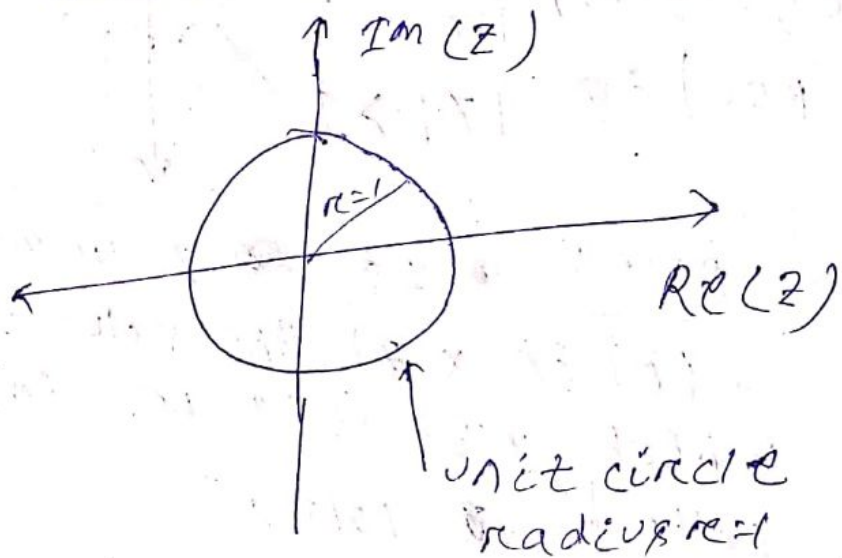 Im (Z)
r=1
Re(Z)
unit circle
radius r=1